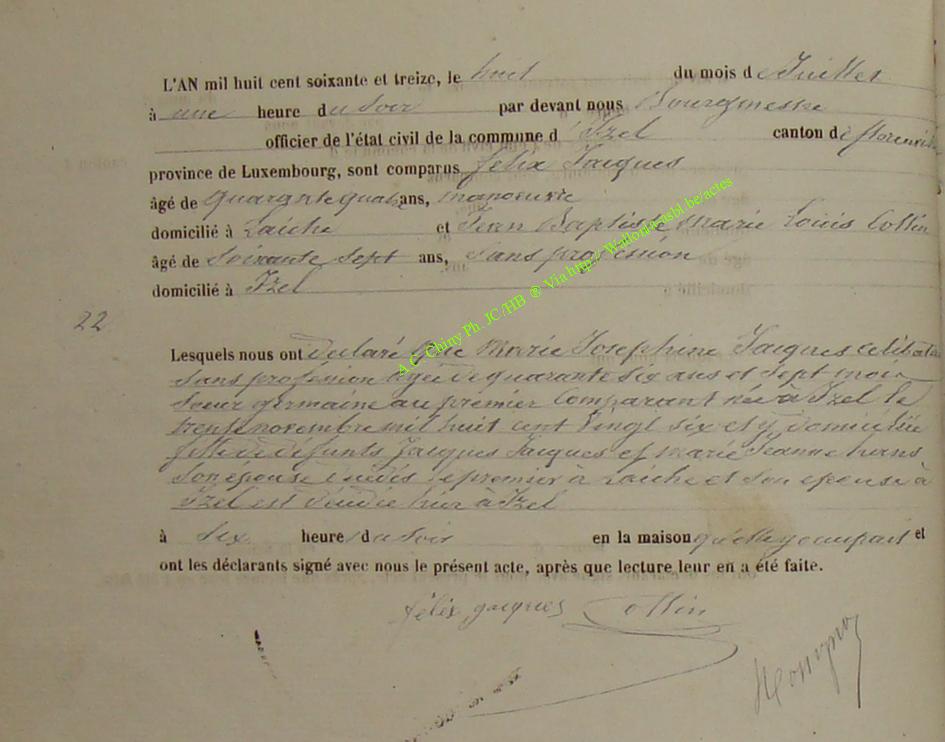 L'AN mil huit cent soixante et treize, le huit du mois de Juillet
à une heure du Soir par devant nous Bourgmestre
officier de l'état civil de la commune d'Izel canton de florenville
province de Luxembourg, sont comparus felix Jacques
âgé de quarante quatre ans, manoeuvre
domicilié à Laiche et Jean Baptiste Marie Louis Collin
âgé de Soixante Sept ans, Sans profession
domicilié à Izel
22
Lesquels nous ont déclaré que Marie Josephine Jacques celibataire
Sans profession agée de quarante Six ans et Sept mois
Soeur germaine au premier Comparant née à Izel le
trente novembre mil huit cent vingt six et y domiciliée
fille de défunts Jacques Jacques et Marie Jeanne
Son épouse le premier à Laiche et Son épouse à
Izel est hier à Izel
à Six heure du Soir en la maison qu'elle y occupait et
ont les déclarants signé avec nous le présent acte, après que lecture leur en a été faite.
félix jacques Collin
A G Chiny Ph. JC/HB @ Via http:// Wallonia-asbl.be/actes